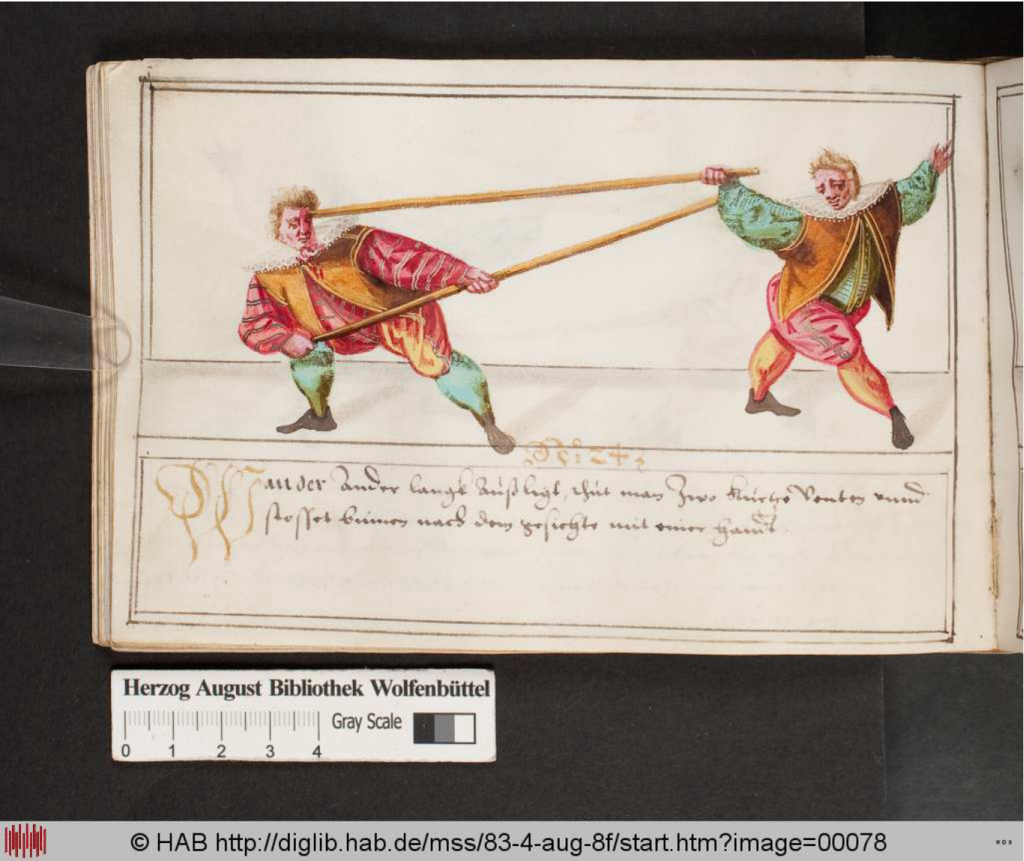 Wan der Ander langk Außligt, thut man Zwo kurtze Venten vnnd
stosset binnen nach dem gesichte mit einer handt
Herzog August Bibliothek Wolfenbüttel
Gray Scale
0 1 2 3 4
© HAB http://diglib.hab.de/mss/83-4-aug-8f/start.htm?image=00078